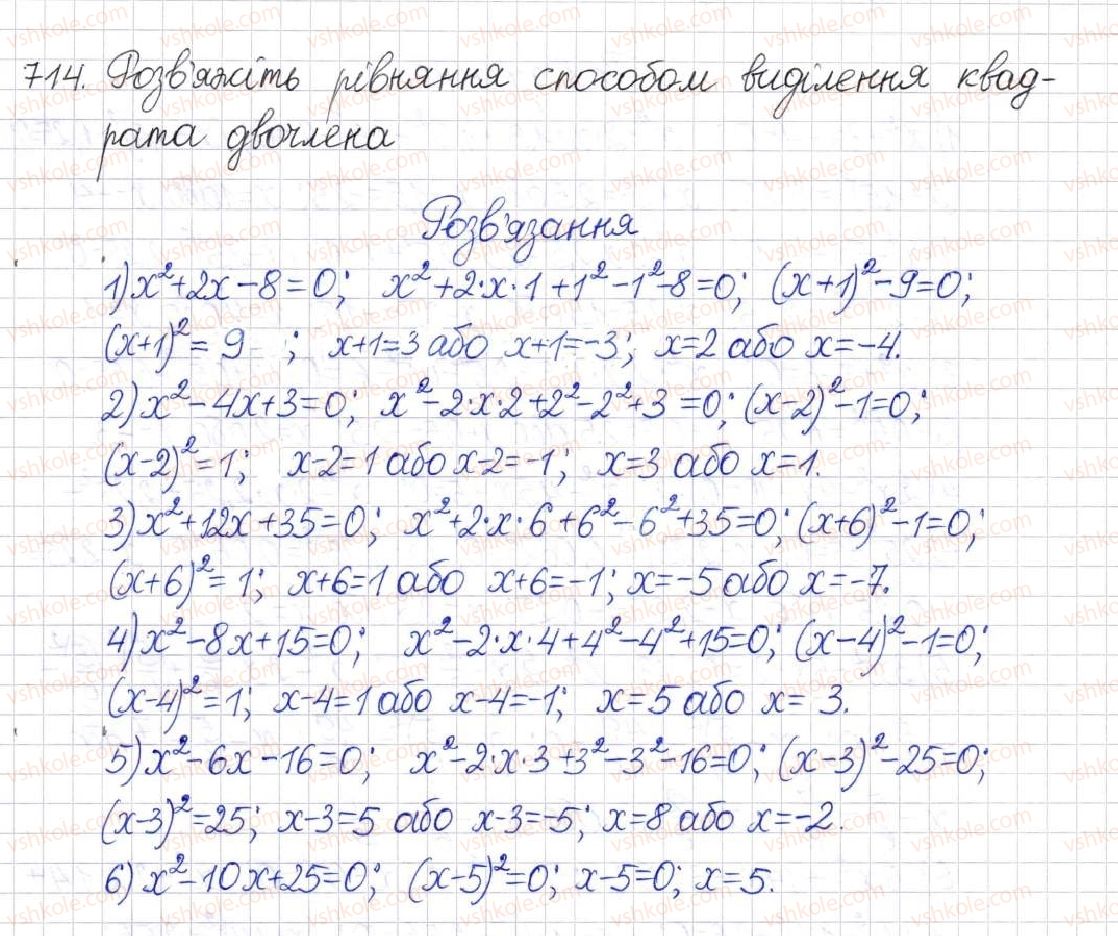 714. Розв'яжіть рівняння способом виділення квад-
рата двочлена
Розв'язання
1) x²+2x-8=0; x²+2·x·1+1²-1²-8=0; (x+1)²-9=0;
(x+1)²=9 ; x+1=3 або x+1=-3; x=2 або x=-4.
2) x²-4x+3=0; x²-2·x·2+2²-2²+3=0; (x-2)²-1=0;
(x-2)²=1; x-2=1 або x-2=-1; x=3 або x=1.
3) x²+12x+35=0; x²+2·x·6+6²-6²+35=0; (x+6)²-1=0;
(x+6)²=1; x+6=1 або x+6=-1; x=-5 або x=-7.
4) x²-8x+15=0; x²-2·x·4+4²-4²+15=0; (x-4)²-1=0;
(x-4)²=1; x-4=1 або x-4=-1; x=5 або x= 3.
5) x²-6x-16=0; x²-2·x·3+3²-3²-16=0; (x-3)²-25=0;
(x-3)²=25; x-3=5 або x-3=-5; x=8 або x=-2.
6) x²-10x+25=0; (x-5)²=0; x-5=0; x=5.